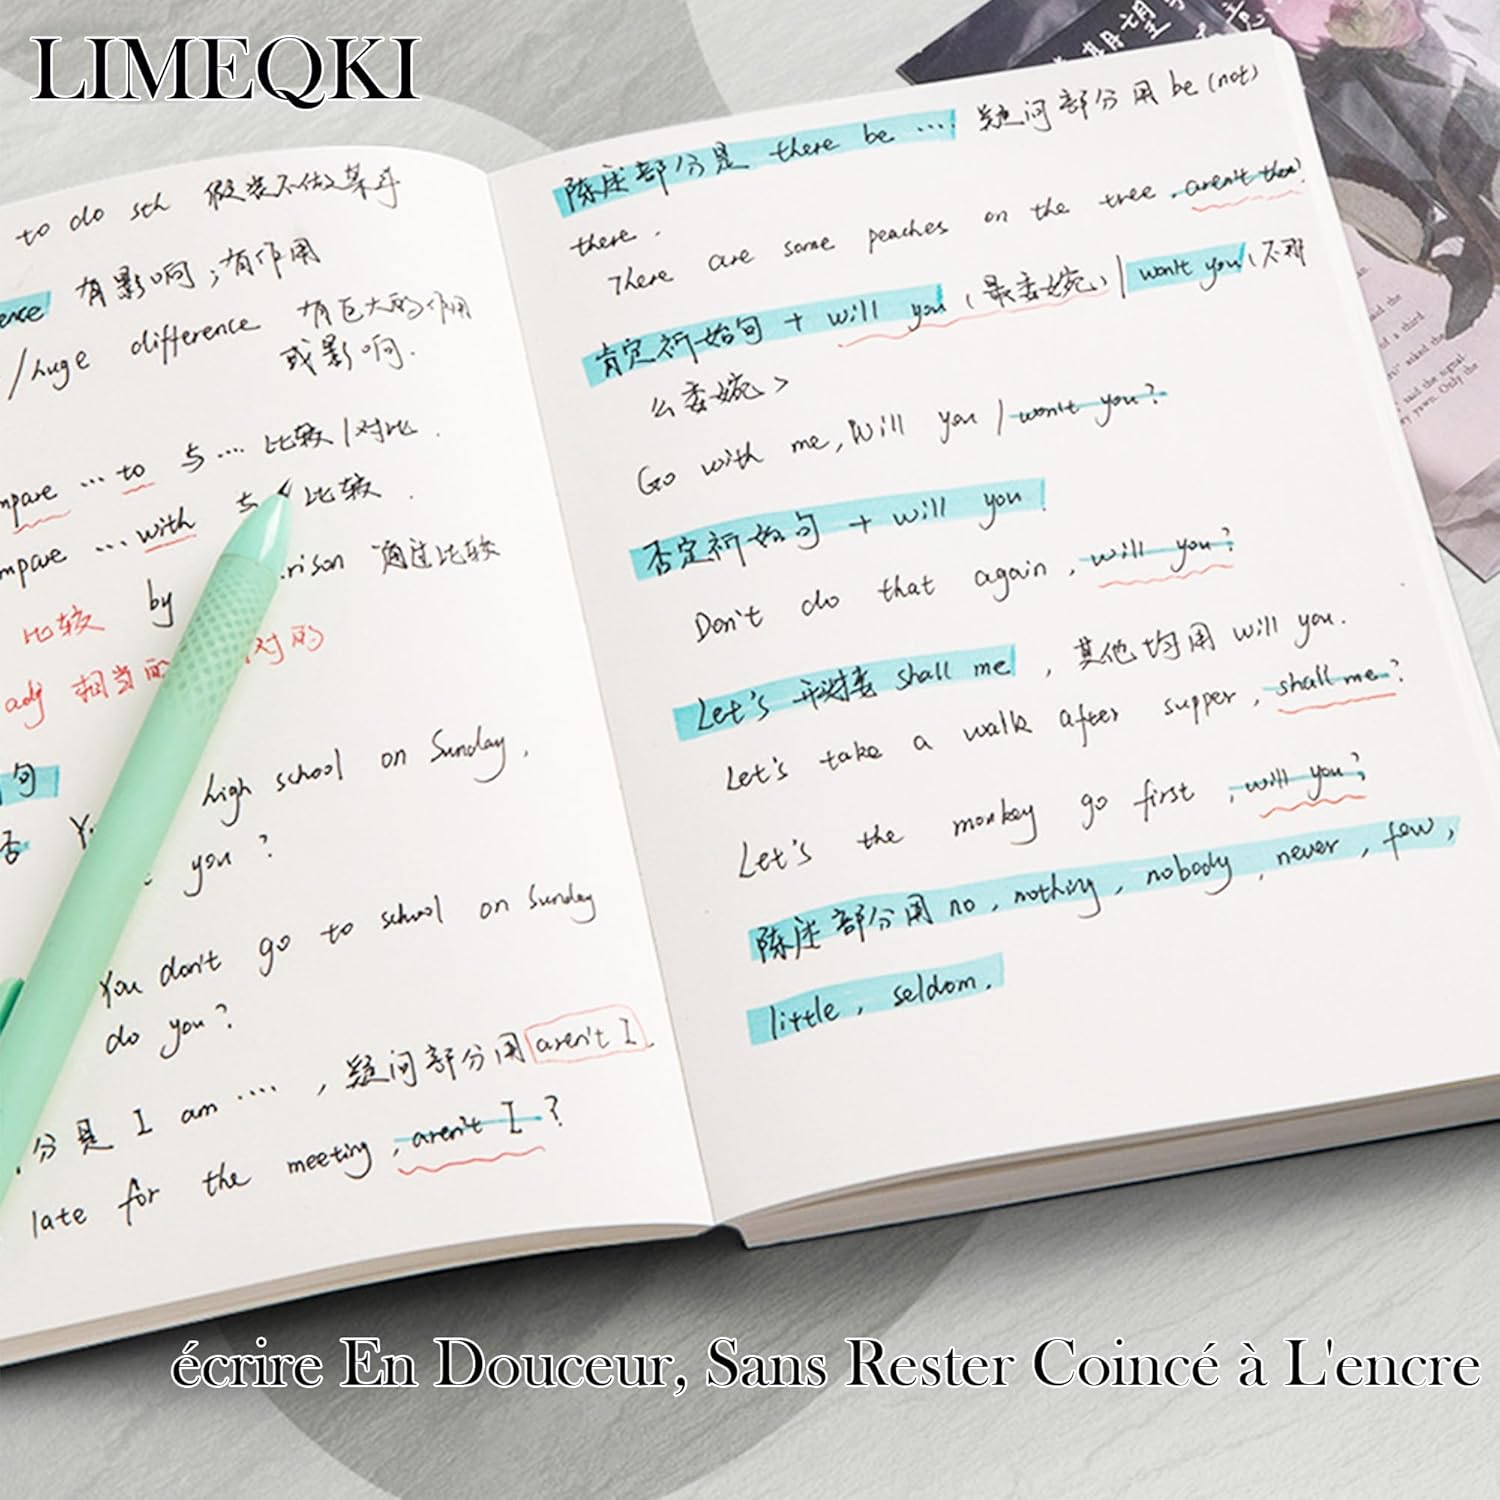 LIMEQKI
to do sth 假装不做某斗
ence 有影响;有作用
/huge difference 有巨大的作用
或影响.
mpare ... to 与... 比较/对比.
mpare ...with 与 比较.
比较 by rison 通过比较
adj 相当的 对的
句
high school on Sunday,
否 you?
You don't go to school on Sunday
do you?
分是 I am ...., 疑问部分用 aren't I.
late for the meeting, aren't I?
陈述部分是 there be .... 疑问部分用 be (not)
there.
There are some peaches on the tree, aren't there?
肯定祈始句 + will you (最委婉) | won't you (不那
么委婉>
Go with me, Will you / won't you?
否定祈始句 + will you.
Don't do that again, will you?
Let's 开头 shall me, 其他均用 will you.
Let's take a walk after supper, shall me?
Let's the monkey go first, will you?
陈述部分用 no, nothing, nobody, never, few,
little, seldom.
期望
the
a third
asked the
said the signal-
town. Only the
écrire En Douceur, Sans Rester Coincé à L'encre